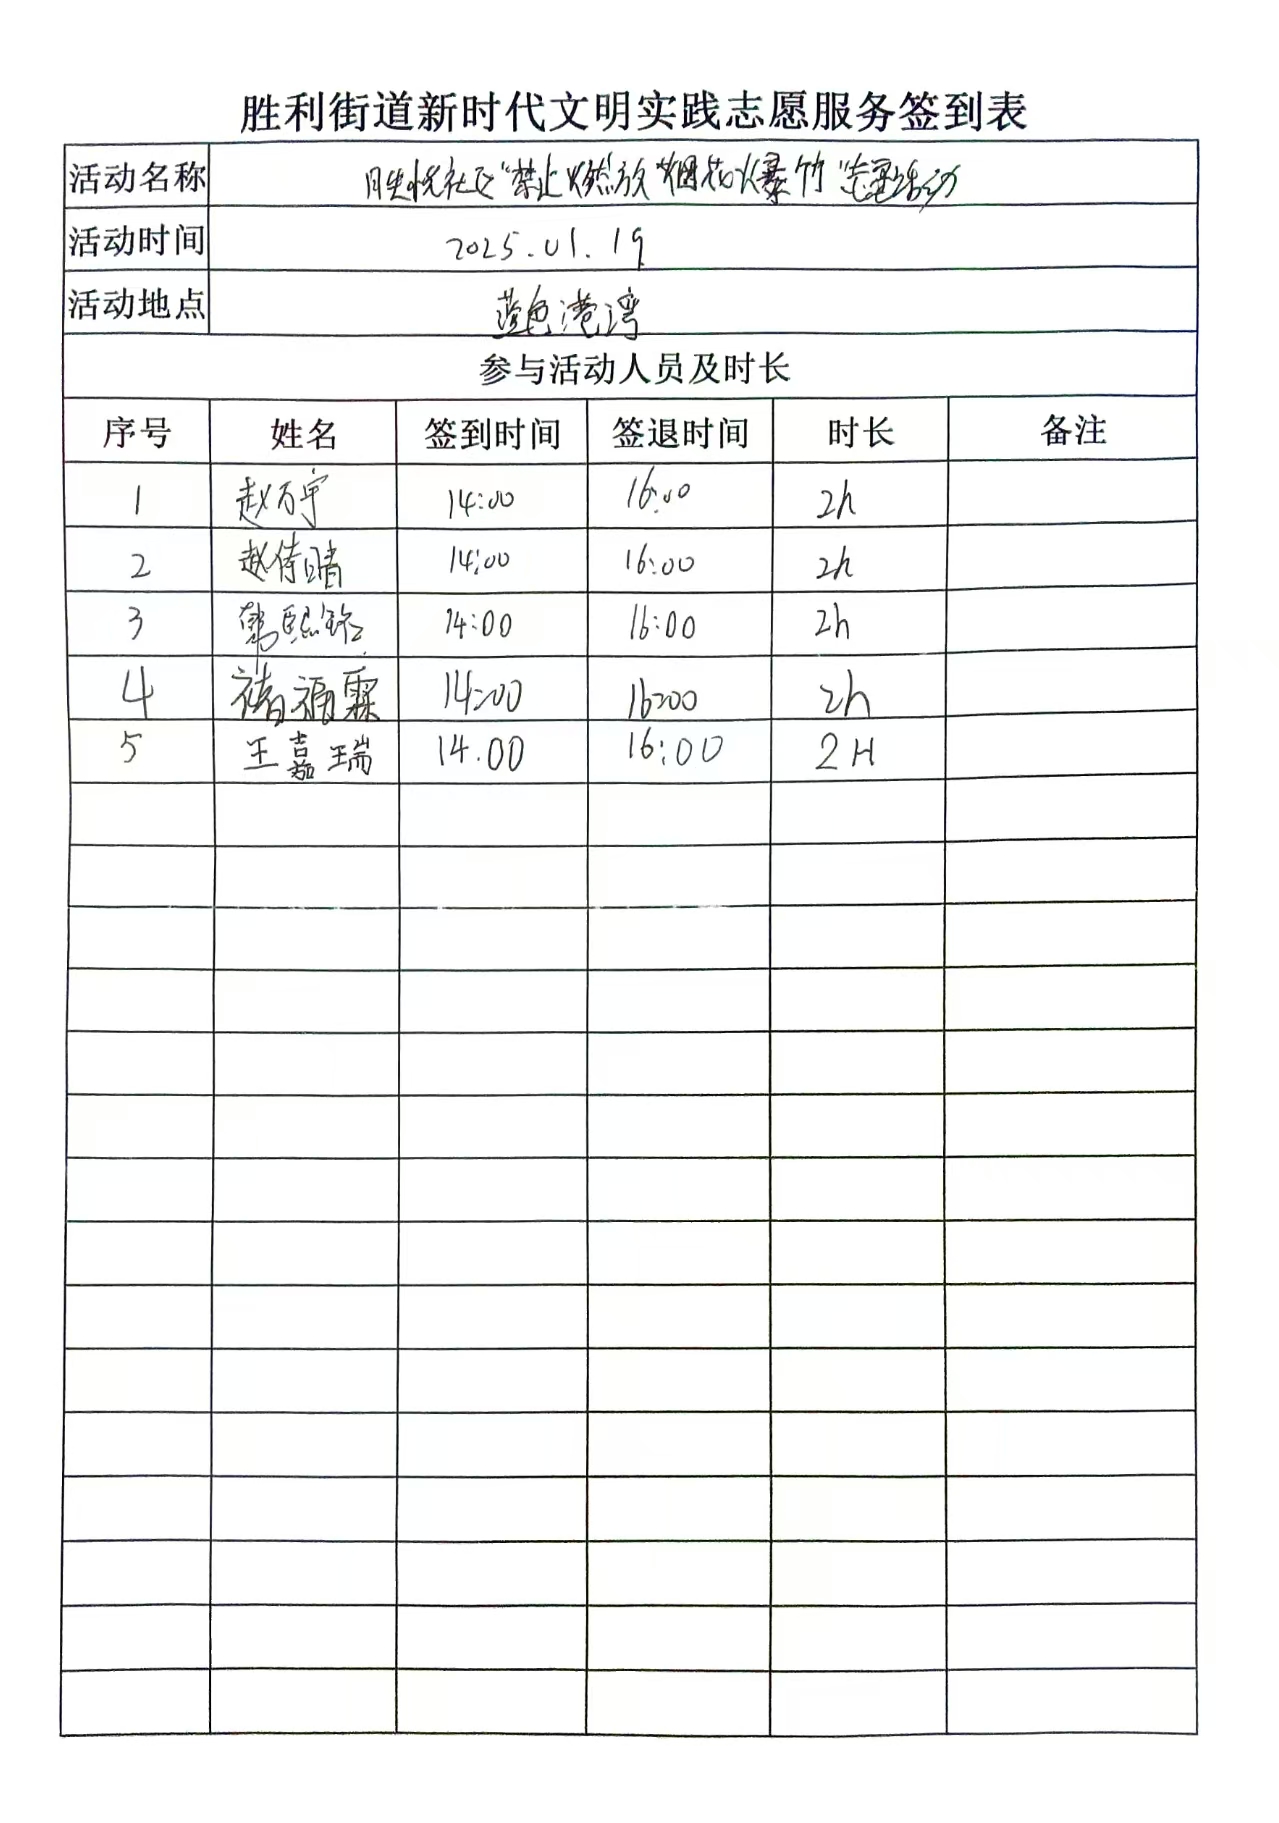 胜利街道新时代文明实践志愿服务签到表
活动名称 胜悦社区"禁止燃放"烟花爆竹"志愿活动
活动时间 2025.01.19
活动地点 蓝色港湾
参与活动人员及时长
序号 姓名 签到时间 签退时间 时长 备注
1 赵万宇 14:00 16:00 2h
2 赵倚晴 14:00 16:00 2h
3 韩熙铭 14:00 16:00 2h
4 褚福霖 14:00 16:00 2h
5 王嘉瑞 14.00 16:00 2H